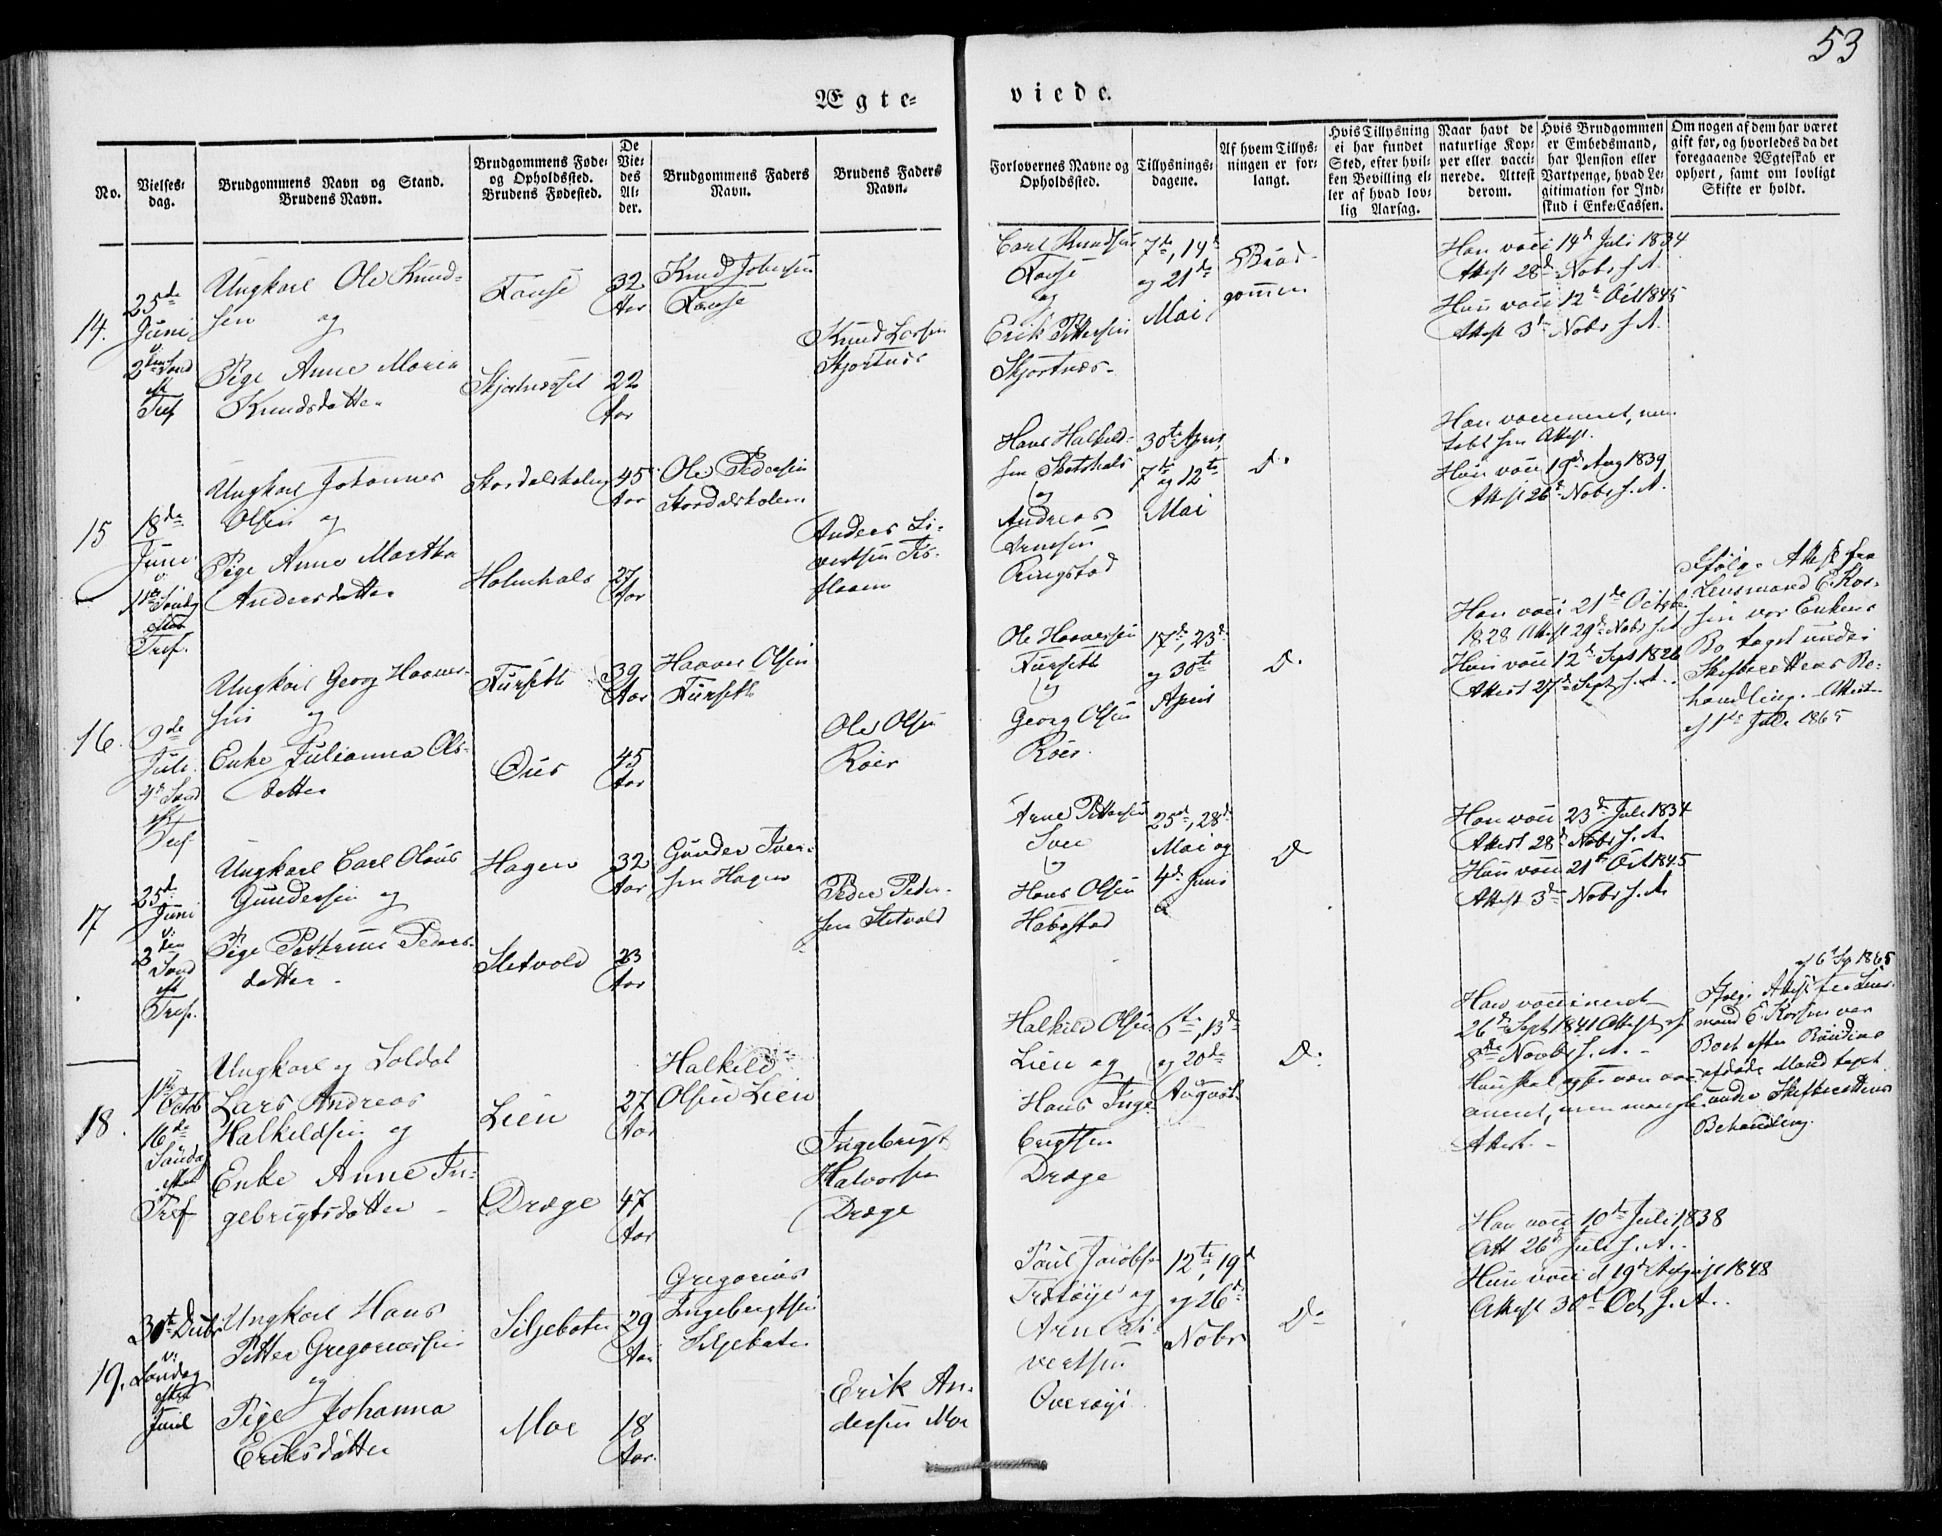 53
Ægte=
viede.
No.
Vielses=
dag.
Brudgommens Navn og Stand.
Brudens Navn.
Brudgommens Føde=
og Opholdssted.
Brudens Fødested.
De
Vie=
des
Al=
der.
Brudgommens Faders
Navn.
Brudens Faders
Navn.
Forlovernes Navne og
Opholdssted.
Tillysnings=
dagene.
Af hvem Tillys=
ningen er for=
langt.
Hvis Tillysning
ei har fundet
Sted, efter hvil=
ken Bevilling el=
ler af hvad lov=
lig Aarsag.
Naar havt de
naturlige Kop=
per eller vacci=
nerede. Attest
derom.
Hvis Brudgommen
er Embedsmand,
har Pension eller
Vartpenge, hvad Le=
gitimation for Ind=
skud i Enke=Cassen.
Om nogen af dem har været
gift før, og hvorledes da det
foregaaende Ægteskab er
ophørt, samt om lovligt
Skifte er holdt.
14.
25de
Juni
v.
3die Sønd
eft
Tref
Ungkarl Ole Knud-
sen og
Pige Anne Maria
Knudsdatter
Fause
Skjortnæsset
32
Aar
22
Aar
Knud Johnsen
Fause
Knud Larsen
Skjortnæs
Carl Knudsen
Fause
og
Erik Pettersen
Skjortnæs
7de, 14de
og 21de
Mai
Brud-
gommen
Han vacc 14de Juli 1834
Attest 28de Nobr s. A.
Hun vacc 12te Oct 1845
Attest 3de Nobr s. A.
15
18de
Juni
v.
Søndag
efter
Tref.
Ungkarl Johannes
Olsen og
Pige Anne Martha
Andersdatter
Stordalsholen
Holmhals
45
Aar
27
Aar
Ole Pedersen
Stordalsholen
Anders Si-
vertsen
Hans Halkild-
sen
og
Andreas
Arnesen
Ringstad
30te April
7de og 12te
Mai
Do
Han vaccineret, men
tabt sin Attest.
Hun vacc 19de Aug 1839
Attest 26de Nobr s. A.
16.
9de
Juli
4de Sønd
eft
Tref
Ungkarl Georg Haaver-
sen og
Enke Julianna Ols-
datter
Furseth
Ous
39
Aar
45
Aar
Haaver Olsen
Furseth
Ole Olsen
Røer
Ole Haaversen
Furseth
og
Georg Olsen
Røer.
17de, 23de
og 30te
April
Do
Han vacc 21de Octbr
1828 Attest 29de Nobr s. A.
Hun vacc 12te Sept 1826
Attest 27de Sept s. A.
Ifølge Attest fra
Lensmand E. Kor-
sen var Enkens
Bo taget under
Skifterettens Be-
handling. Attest
af 1ste Juli 1865
17
25de
Juni
v.
3den
Sønd
eft
Tref.
Ungkarl Carl Olaus
Gundersen og
Pige Petterine Peders-
datter
Hagen
Sletvold
32
Aar
23
Aar
Gunder Iver-
sen Hagen
Peder Peder-
sen Sletvold
Arne Pettersen
og
Hans Olsen
Habostad
25de, 28de
Mai og
4de Juni
Do
Han vacc 23de Juli 1834
Attest 28de Nobr s. A.
Hun vacc 21de Oct 1845
Attest 3de Nobr s. A.
18.
1ste
Octob
16de
Søndag
efter
Tref
Ungkarl og Soldat
Lars Andreas
Halkildsen og
Enke Anne In-
gebrigtsdatter
Lien
Dræge
27
Aar
47
Aar
Halkild
Olsen Lien
Ingebrigt
Halvorsen
Dræge
Halkild Olsen
Lien og
Hans Inge
brigtsen
Dræge
6te, 13de
og 20de
August
Do
Han vaccineret
26de Sept 1841 Attest af
8de Novbr s. A.
Hun skal ogsaa være vac-
cineret, men mangler
Attest.
af 6 Sep 1865
Ifølge Attest fra Lens-
mand E. Korsen var
Boet efter Brudens
afdøde Mand taget
under Skifterettens
Behandling.
19.
30te Decbr
v.
Søndag
efter
Juul
Ungkarl Hans
Petter Gregoriussen
og
Pige Johanna
Eriksdatter
Siljebøten
Moe
29
Aar
18
Aar
Gregorius
Ingebrigtsen
Siljebøten
Erik An-
dersen Moe
Poul Jacobsen
og
Arne Si-
vertsen
Overøye
12te, 19de
og 26de
Nobr
Do
Han vacc 10de Juli 1838
Att 26de Juli s. A.
Hun vacc d 19de August 1848
Attest 30te Oct s. A.